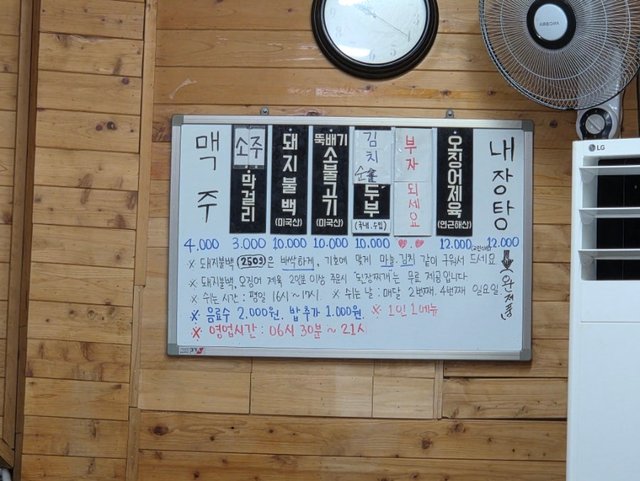 맥주
소주
막걸리
돼지불백
(미국산)
뚝배기
소불고기
(미국산)
김치
순두부
(국내.수입)
부자 되세요
오징어제육
(연근해산)
내장탕
4,000 3.000 10.000 10.000 10.000 12.000 12.000
※ 돼지불백(250g)은 바싹하게. 기호에 맞게 마늘.김치 같이 구워서 드세요
(완제품)
※ 돼지불백.오징어 제육 2인분 이상 주문시 '된장찌개'는 무료 제공입니다
※ 쉬는 시간: 평일 16시~17시. ※ 쉬는 날: 매달 2번째. 4번째 일요일.
※ 음료수 2.000원. 밥추가 1.000원. ※ 1인 1메뉴
※ 영업시간: 06시 30분 ~ 21시
LG